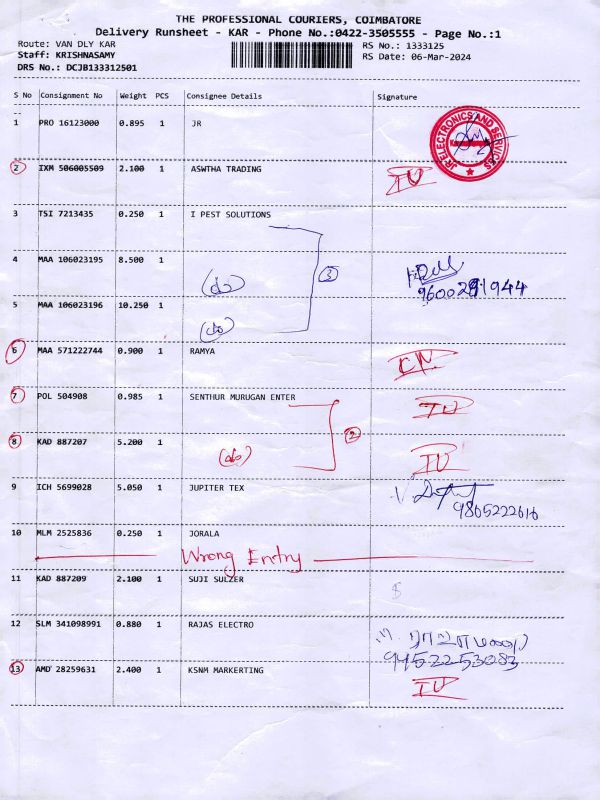 THE PROFESSIONAL COURIERS, COIMBATORE
Delivery Runsheet - KAR - Phone No.:0422-3505555 - Page No.:1
Route: VAN DLY KAR RS No.: 1333125
Staff: KRISHNASAMY RS Date: 06-Mar-2024
DRS No.: DCJB133312501
S No Consignment No Weight PCS Consignee Details Signature
--
1 PRO 16123000 0.895 1 JR
JR ELECTRONICS AND SERVICES
2 IXM 506005509 2.100 1 ASWTHA TRADING
3 TSI 7213435 0.250 1 I PEST SOLUTIONS
4 MAA 106023195 8.500 1
(do) 3
9600291944
5 MAA 106023196 10.250 1
(do)
6 MAA 571222744 0.900 1 RAMYA
7 POL 504908 0.985 1 SENTHUR MURUGAN ENTER
8 KAD 887207 5.200 1 2
(do)
9 ICH 5699028 5.050 1 JUPITER TEX
9865222616
10 MLM 2525836 0.250 1 JORALA
Wrong Entry
11 KAD 887209 2.100 1 SUJI SULZER
12 SLM 341098991 0.880 1 RAJAS ELECTRO
9452253083
13 AMD 28259631 2.400 1 KSNM MARKERTING